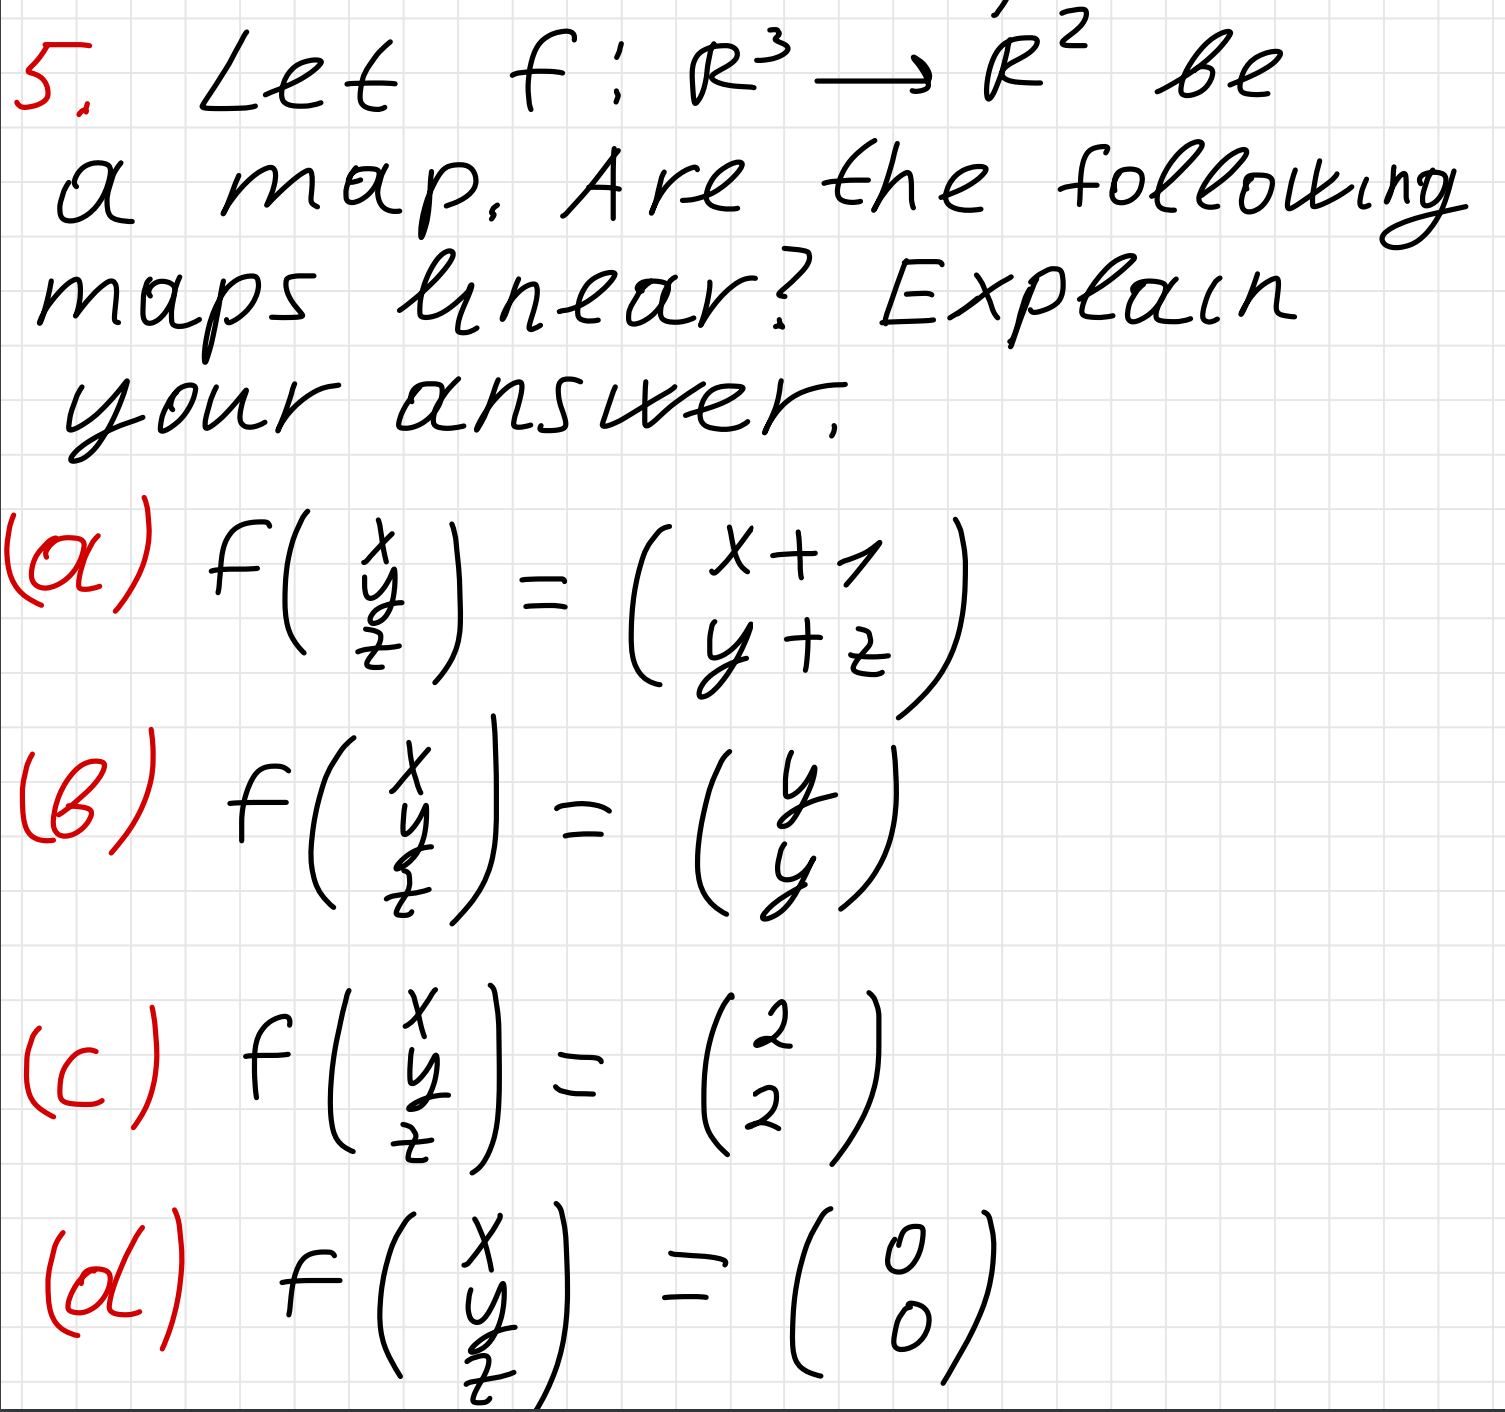 5. Let f : R³ → R² be
a map. Are the following
maps linear? Explain
your answer.
(a) f(x y z) = (x+1 y+z)
(b) f(x y z) = (y y)
(c) f(x y z) = (2 2)
(d) f(x y z) = (0 0)